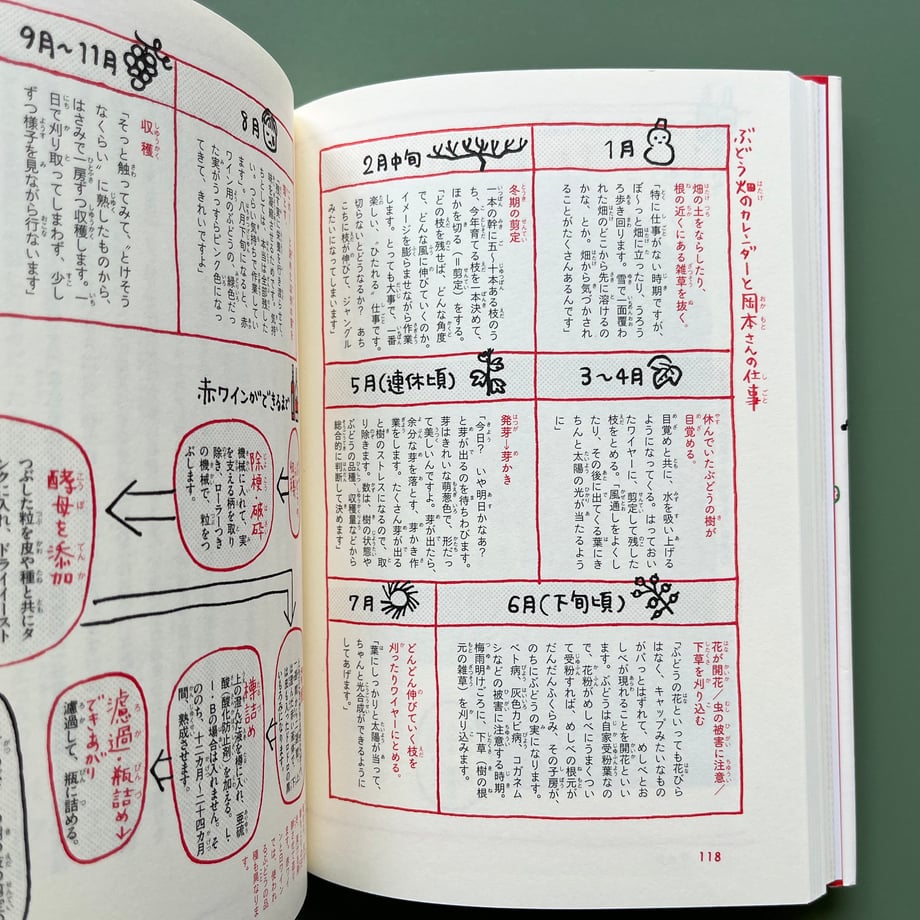 ぶどう畑のカレンダーと岡本さんの仕事
1月
畑の土をならしたり、
根の近くにある雑草を抜く。
「特に仕事がない時期ですが、
ぼ〜っと畑に立ったり、うろう
ろ歩き回ります。雪で一面覆わ
れた畑のどこから先に溶けるの
かな、とか。畑から気づかされ
ることがたくさんあるんです」
2月中旬
冬期の剪定
一本の幹に五〜十本ある枝のう
ち、今年育てる枝を一本決めて、
ほかを切る（＝剪定）をする。
「どの枝を残せば、どんな角度
で、どんな風に伸びていくのか。
イメージを膨らませながら作業
します。とっても大事で、一番
楽しい、〝ひたれる〟仕事です。
切らないとどうなるか？ あち
こちに枝が伸びて、ジャングル
みたいになってしまいます」
3〜4月
休んでいたぶどうの樹が
目覚める。
目覚めと共に、水を吸い上げる
ようになってくる。はっておい
たワイヤーに、剪定して残した
枝をとめる。「風通しをよくし
たり、その後に出てくる葉にき
ちんと太陽の光が当たるよう
に」
5月（連休頃）
発芽→芽かき
「今日？ いや明日かなあ？
と芽が出るのを待ちわびます。
芽はきれいな萌葱色で、形だっ
て美しいんですよ。芽が出たら、
余分な芽を落とす、芽かき作
業をします。たくさん芽が出る
と樹のストレスになるので、取
り除きます。数は、樹の状態や
ぶどうの品種、収穫量などから
総合的に判断して決めます」
6月（下旬頃）
花が開花／虫の被害に注意／
下草を刈り込む
「ぶどうの花といっても花びら
はなく、キャップみたいなもの
がパッとはずれて、めしべとお
しべが現れることを開花といい
ます。ぶどうは自家受粉葉なの
で、花粉がめしべにうまくつい
て受粉すれば、めしべの根元が
だんだんふくらみ、その子房が、
のちにぶどうの実になります。
ベト病、灰色カビ病、コガネム
シなどの被害に注意する時期。
梅雨明けごろに、下草（樹の根
元の雑草）を刈り込みます。
7月
どんどん伸びていく枝を
刈ったりワイヤーにとめる。
「葉にしっかりと太陽が当って、
ちゃんと光合成ができるように
してあげます。
118
8月
ワイン用のぶどうの、緑色だっ
た実がうっすらピンク色になっ
てきて、きれいですよ」
9月〜11月
収穫
「そっと触ってみて、〝とけそう
なくらい〟に熟したものから、
はさみで一房ずつ収穫します。一
日で刈り取ってしまわず、少し
ずつ様子を見ながら行ないます」
赤ワインができるまで
除梗・破砕
機械に入れて、実
を支える柄を取り
除き、ローラーつき
の機械で、粒をつ
ぶします。
酵母を添加
つぶした粒を皮や種と共にタ
ンクに入れ、ドライイースト
樽詰め
上の澄んだ液を樽に入れ、亜硫
酸（酸化防止剤）を加える。L・
I・Bの場合は入れません。そ
ののち、十二カ月〜二十四カ月
間、熟成させます。
濾過・瓶詰め→
できあがり
濾過して、瓶に詰める。